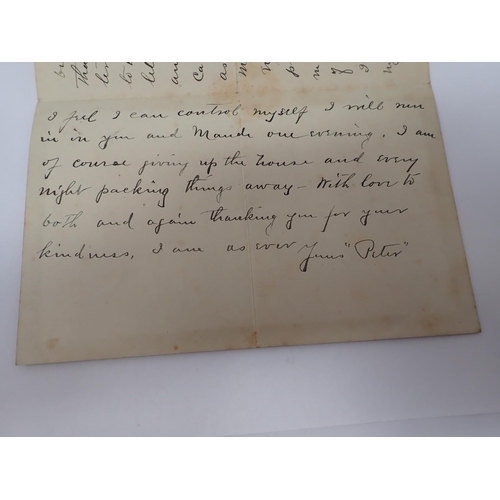 I feel I can control myself I will run
in on you and Maude one evening. I am
of course giving up the house and every
night packing things away - With love to
both and again thanking you for your
kindness, I am as ever Yours "Peter"